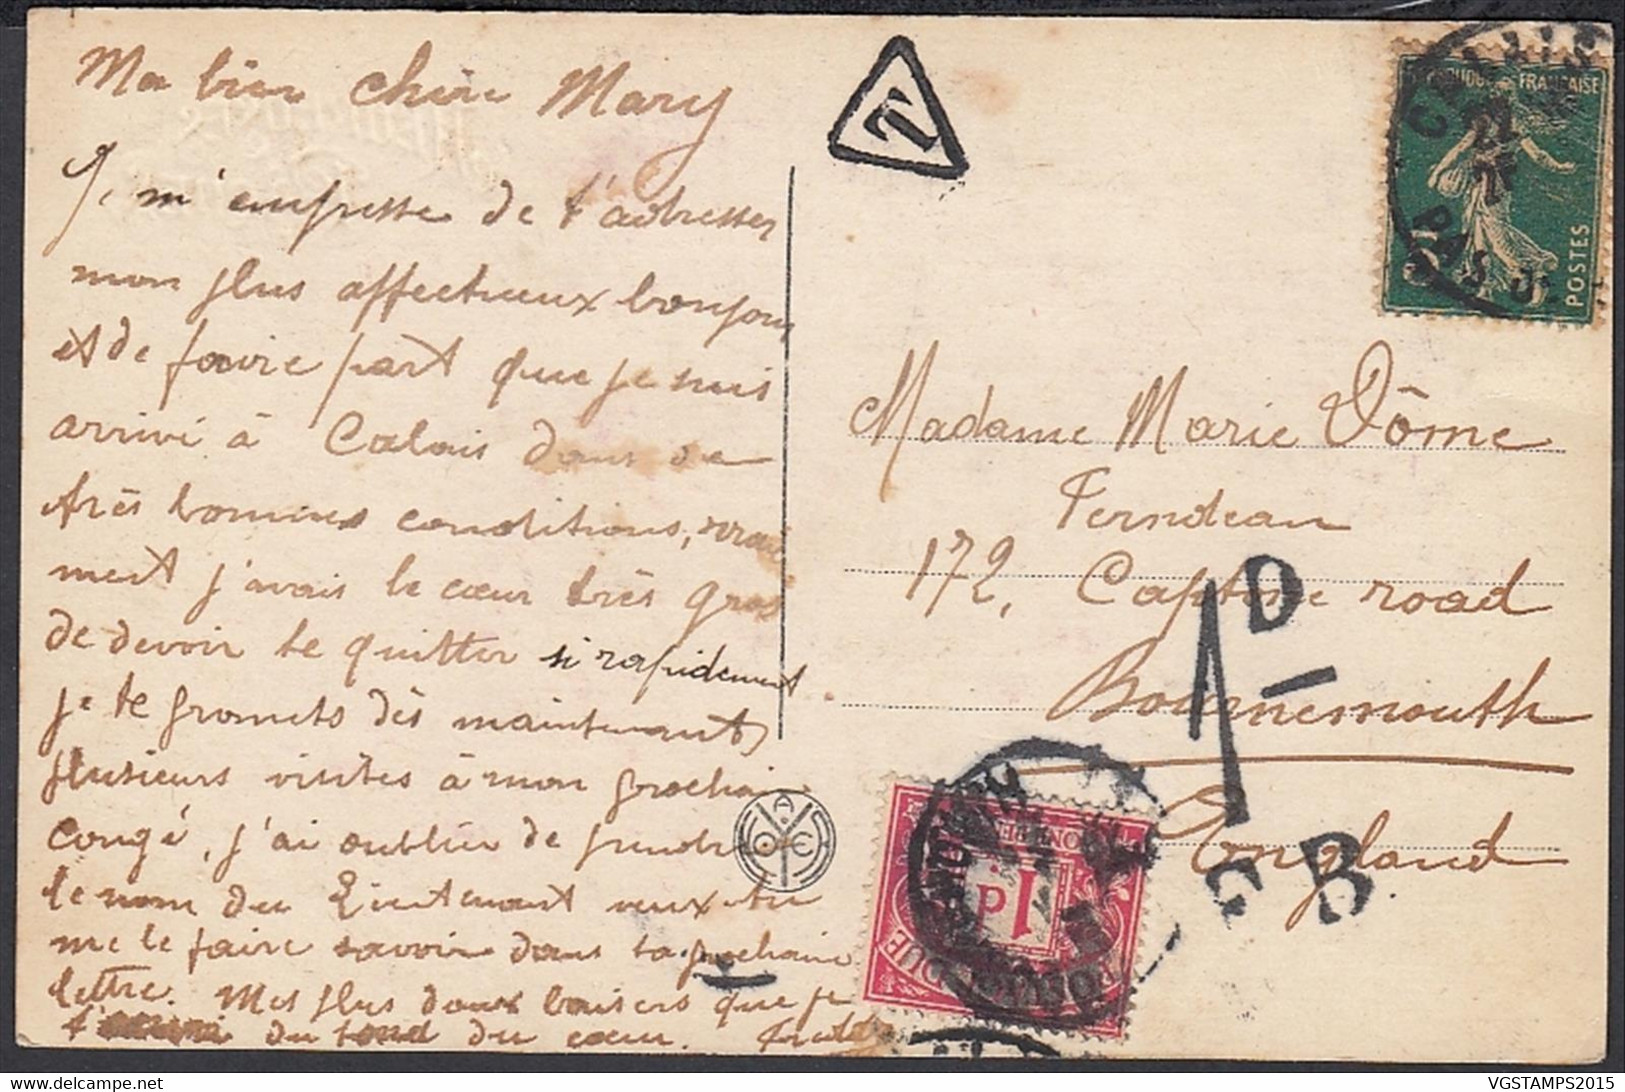 Ma bien chère Mary
Je m'empresse de t'adresser
mon plus affectueux bonjour
et de faire part que je suis
arrivé à Calais dans de
très bonnes conditions, vrai
ment j'avais le cœur très gros
de devoir te quitter si rapidement
je te promets dès maintenant
plusieurs visites à mon prochain
congé, j'ai oublié de prendre
le nom du Lieutenant veux tu
me le faire savoir dans ta prochaine
lettre. Mes plus doux baisers que je
du fond du cœur.
T
CALAIS
PAS-DE
REPUBLIQUE FRANÇAISE
POSTES
Madame Marie Dôme
Ferndean
172, Capstone road
Bournemouth
England
1D
GB
1d.
POSTAGE DUE
BOURNEMOUTH
delcampe.net
VGSTAMPS2015